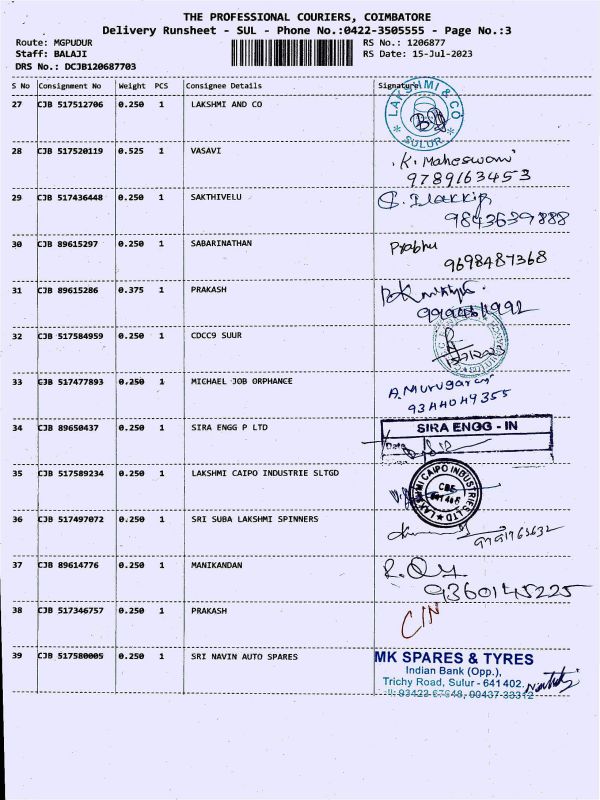 THE PROFESSIONAL COURIERS, COIMBATORE
Delivery Runsheet - SUL - Phone No.:0422-3505555 - Page No.:3
Route: MGPUDUR RS No.: 1206877
Staff: BALAJI RS Date: 15-Jul-2023
DRS No.: DCJB120687703
S No Consignment No Weight PCS Consignee Details Signature
27 CJB 517512706 0.250 1 LAKSHMI AND CO LAKSHMI & CO
* SULUR *
28 CJB 517520119 0.525 1 VASAVI
K. Maheswari
9789163453
29 CJB 517436448 0.250 1 SAKTHIVELU
9843639888
30 CJB 89615297 0.250 1 SABARINATHAN Prabhu
9698487368
31 CJB 89615286 0.375 1 PRAKASH
32 CJB 517584959 0.250 1 CDCC9 SUUR
33 CJB 517477893 0.250 1 MICHAEL JOB ORPHANCE A. Murugan
9344049355
34 CJB 89650437 0.250 1 SIRA ENGG P LTD SIRA ENGG - IN
35 CJB 517589234 0.250 1 LAKSHMI CAIPO INDUSTRIE SLTGD LAKSHMI CAIPO INDUSTRIES LTD
CBE
36 CJB 517497072 0.250 1 SRI SUBA LAKSHMI SPINNERS
9791763632
37 CJB 89614776 0.250 1 MANIKANDAN
9360145225
38 CJB 517346757 0.250 1 PRAKASH C/N
39 CJB 517580005 0.250 1 SRI NAVIN AUTO SPARES MK SPARES & TYRES
Indian Bank (Opp.),
Trichy Road, Sulur - 641 402.